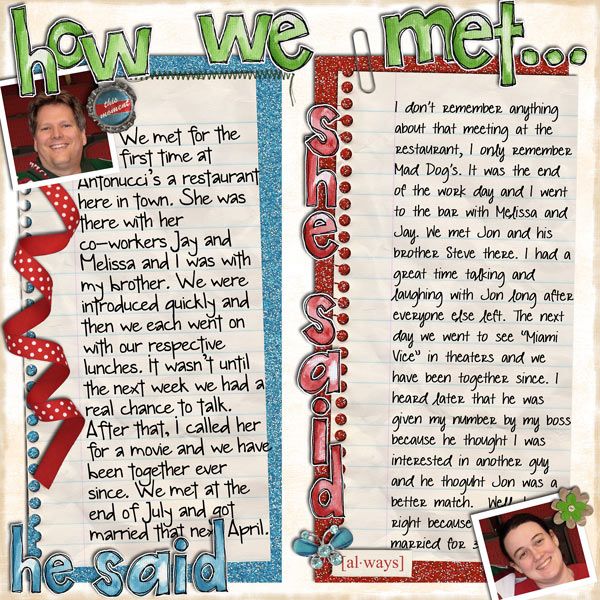 how we met...
this moment
We met for the
first time at
Antonucci's a restaurant
here in town. She was
there with her
co-workers Jay and
Melissa and I was with
my brother. We were
introduced quickly and
then we each went on
with our respective
lunches. It wasn't until
the next week we had a
real chance to talk.
After that, I called her
for a movie and we have
been together ever
since. We met at the
end of July and got
married that next April.
he said
she said
I don't remember anything
about that meeting at the
restaurant, I only remember
Mad Dog's. It was the end
of the work day and I went
to the bar with Melissa and
Jay. We met Jon and his
brother Steve there. I had a
great time talking and
laughing with Jon long after
everyone else left. The next
day we went to see "Miami
Vice" in theaters and we
have been together since. I
heard later that he was
given my number by my boss
because he thought I was
interested in another guy
and he thoguht Jon was a
better match.
right because
married for
[al•ways]